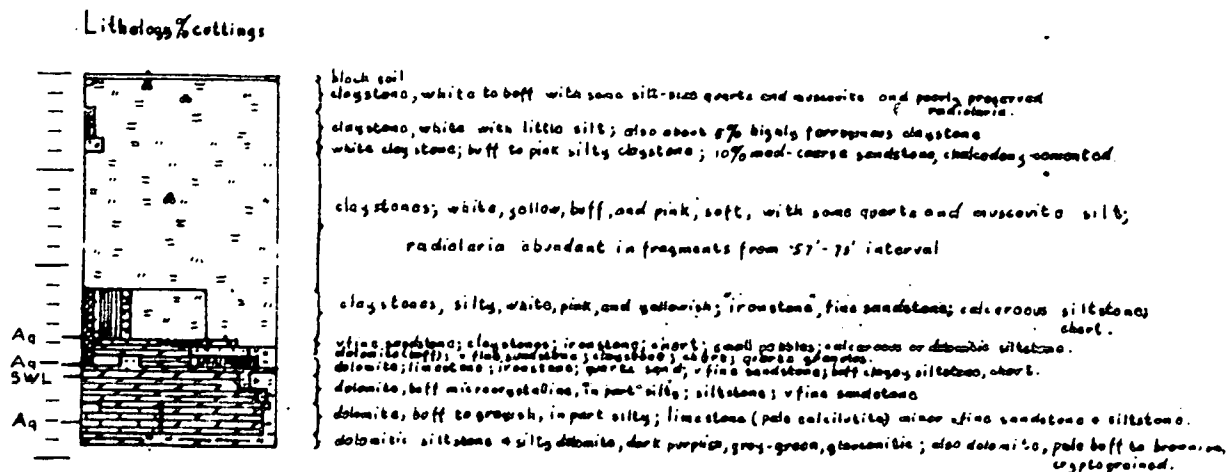 Lithology % cuttings
black soil
claystone, white to buff with some silt-size quartz and muscovite and poorly preserved
radiolaria.
claystone, white with little silt; also about 5% highly ferruginous claystone
white claystone; buff to pink silty claystone; 10% med-coarse sandstone, chalcedony-cemented.
claystones; white, yellow, buff, and pink, soft, with some quartz and muscovite silt;
radiolaria abundant in fragments from 57'-75' interval
claystones, silty, white, pink, and yellowish; "ironstone", fine sandstone; calcareous siltstone;
chert.
Aq
v fine sandstone; claystones; ironstone; chert; small pebbles; calcareous or dolomitic siltstone.
dolomite (buff); v fine sandstone; claystone; chert; quartz granules.
Aq
dolomite; limestone; ironstone; quartz sand; v fine sandstone; buff clayey siltstone, chert.
SWL
dolomite, buff microcrystalline, in part silty; siltstone; v fine sandstone
Aq
dolomite, buff to greyish, in part silty; limestone (pale calcilutite) minor v fine sandstone & siltstone.
dolomitic siltstone & silty dolomite, dark purplish, grey-green, glauconitic; also dolomite, pale buff to brownish,
cryptograined.